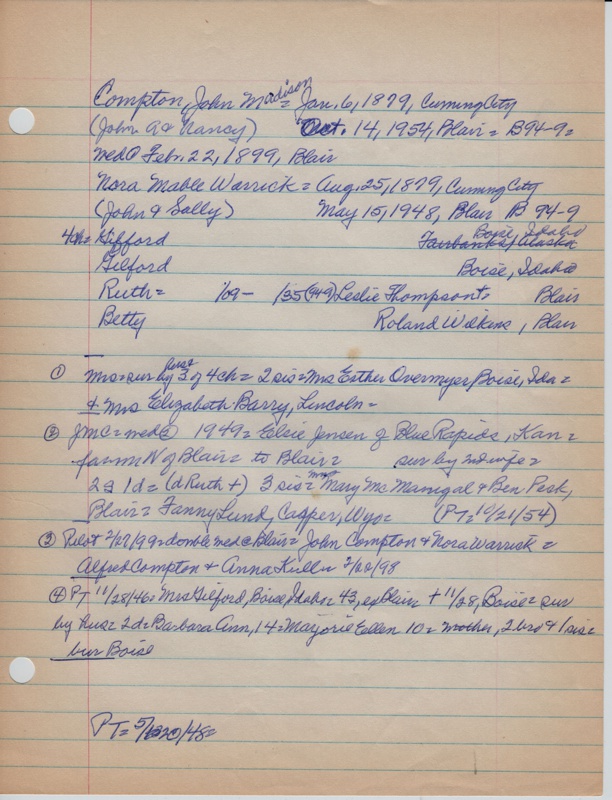 Compton, John Madison = Jan. 6, 1879, Cuming City
(John A & Nancy) Oct. 14, 1954, Blair = B94-9 =
wed @ Feb. 22, 1899, Blair
Nora Mable Warrick = Aug. 25, 1879, Cuming City
(John & Sally) May 15, 1948, Blair B 94-9
Boise, Idaho
4ch = Gifford Fairbanks, Alaska
Gilford Boise, Idaho
Ruth = '09 - '35 Leslie Thompson Blair
Betty Roland Wilkins, Blair
① Mrs = sur by hus & 3 of 4 ch = 2 sis = Mrs Esther Overmyer Boise, Ida =
& Mrs Elizabeth Barry, Lincoln =
② JMC = wed @ 1949 = Elsie Jensen of Blue Rapids, Kan =
farm N of Blair = to Blair = sur by 2nd wife =
2s 1d = (d Ruth +) 3 sis = Mrs Mary Mc Manigal & Ben Pesk,
Blair = Fanny Lund, Casper, Wyo = (PT = 10/21/54)
③ Pilot 2/27/99 = double wed @ Blair = John Compton & Nora Warrick =
Alfred Compton & Anna 2/22/98
④ PT 11/28/46 = Mrs Gilford, Boise, Idaho = 43, ex Blair + 11/28, Boise = sur
by hus = 2d = Barbara Ann, 14 = Marjorie Ellen 10 = mother, 2 bro & 1 sis =
bur Boise
PT = 5/20/48 =